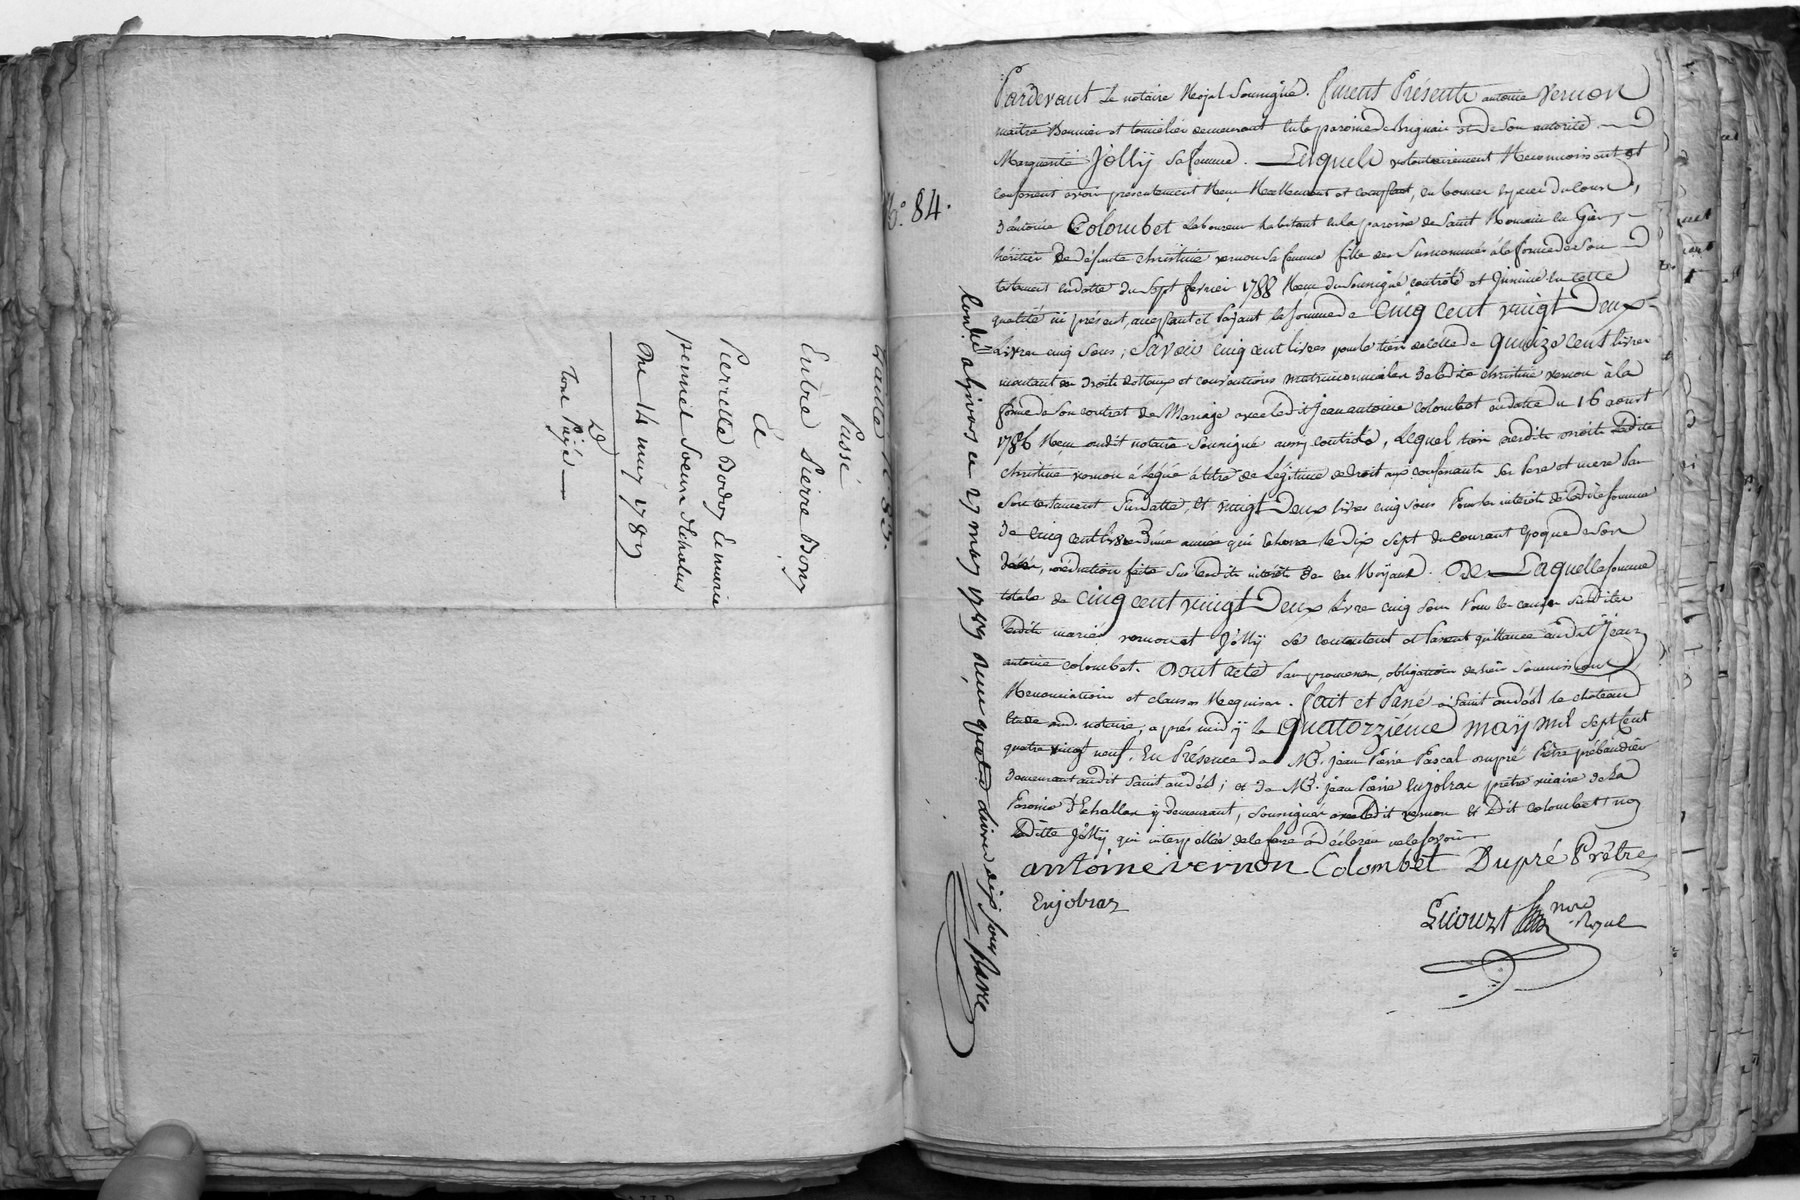 traitté n. 83.
Passé
Entre Pierre Bony
&
Pierrette Bony Emurie
permet Soeur d'Echalas
Du 14 may 1789
D
Tone Payé
N.º 84.
Pardevant Le notaire Royal Soussigné. furent Présents antoine vernon
maitre Vannier et tonnelier demeurant en la paroisse de Brignais et de Son autorité
Marguerite Jolly Sa femme. Lesquels volontairement Reconnoissent et
confessent avoir présentement Reçu Réellement et comptant, en bonnes espèces du cours,
d'antoine Colombet Laboureur habitant en la paroisse de Saint Romain en Gier,
héritier de défunte christine vernon Sa femme fille des Surnommés à la forme de Son
testament en datte du Sept fevrier 1788 Reçu du Soussigné controlé et Insinué en cette
qualité ici présent, acceptant et Payant la Somme de Cinq cent vingt Deux
Livres cinq Sous; Savoir cinq cent livres pour le tiers de celle de Quinze cent livres
montant des droits dottaux et conventions matrimonniales de ladite christine vernon à la
forme de Son contrat de Mariage avec ledit Jean antoine colombet en datte du 16 aoust
1786 Reçu dudit notaire Soussigné aussy controlé, Lequel tiers desdits droits Ladite
christine vernon à Légué à titre de Légitime de droit aux confessants Ses Pere et mere Par
Son testament Susdatté, et vingt Deux livres cinq Sous Pour les intérêts de ladite Somme
de cinq cent livres d'une année qui Echerra le dix Sept du courant Epoque de Son
décès, déduction faite Sur lesdits intérêts de les Royaux. De Laquelle Somme
totale de cinq cent vingt Deux Livres cinq Sous Pour les causes Susdites
lesdits mariés vernon et Jolly Se contentent et Passent quittance audit Jean
antoine colombet. Dont acte Par promesses, obligation de biens Soumissions,
Renonciations et clauses Requises. fait et Passé à Saint andéol le chateau
Etude dud. notaire, après midy le Quatorzième may mil Sept Cent
quatre vingt neuf. En Présence de Mr. jean Pierre Pascal dupré Prêtre prébandier
demeurant audit Saint andéol; et de Mr. jean Pierre Enjolras prêtre vicaire de La
Paroisse d'Echallas y demeurant, Soussignés avec ledit vernon et Ledit colombet, non
Laditte Jolly qui interpellée de le faire à déclaré ne le Savoir
antoine vernon Colombet Dupré Prêtre
Enjolras
nore
Royal
Conlé a givors ce 27 may 1789 reçu quatre livres dix Sous